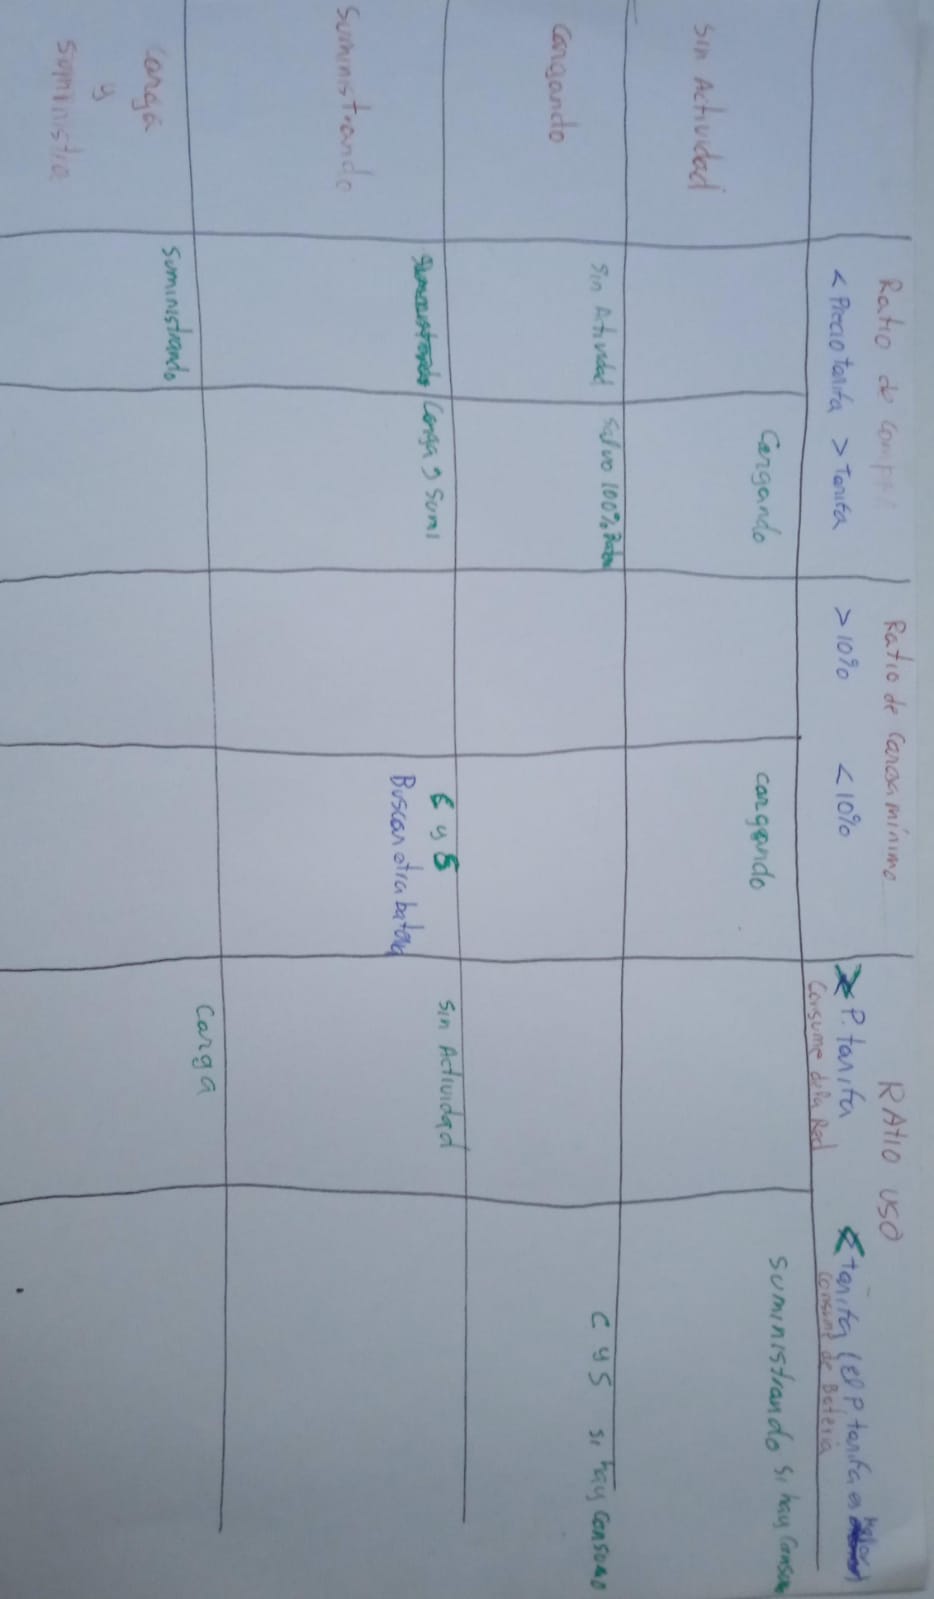 Ratio de comp
Ratio de Carga mínimo
RAtio USO
< Precio tarifa > Tarifa
> 10% < 10%
> P. tarifa
< tarifa (El P. tarifa es
Consume de la Red
Consume de Bateria
Sin Actividad
Cargando
cargando
Suministrando si hay Consumo
Cargando
Sin Actividad
Salvo 100% Bateria
C y S si hay Consumo
Suministrando
Suministrando
Carga y Sumi
C y S
Buscar otra bateria
Sin Actividad
Carga
y
Suministra
Suministrando
Carga